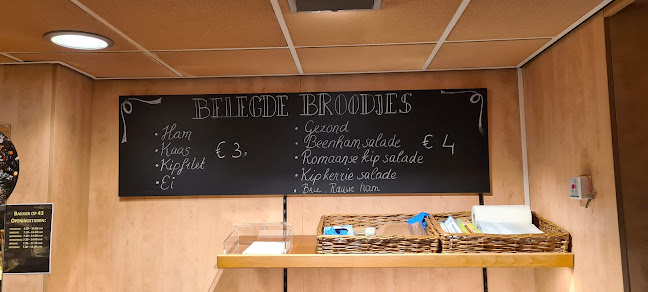 BELEGDE BROODJES
• Ham
• Kaas
• Kipfilet
• Ei
€ 3.-
• Gezond
• Beenham salade
• Romaanse kip salade
• Kip kerrie salade
• Brie, Rauwe ham
€ 4
BAKKER OP 43
OPENINGSTIJDEN: